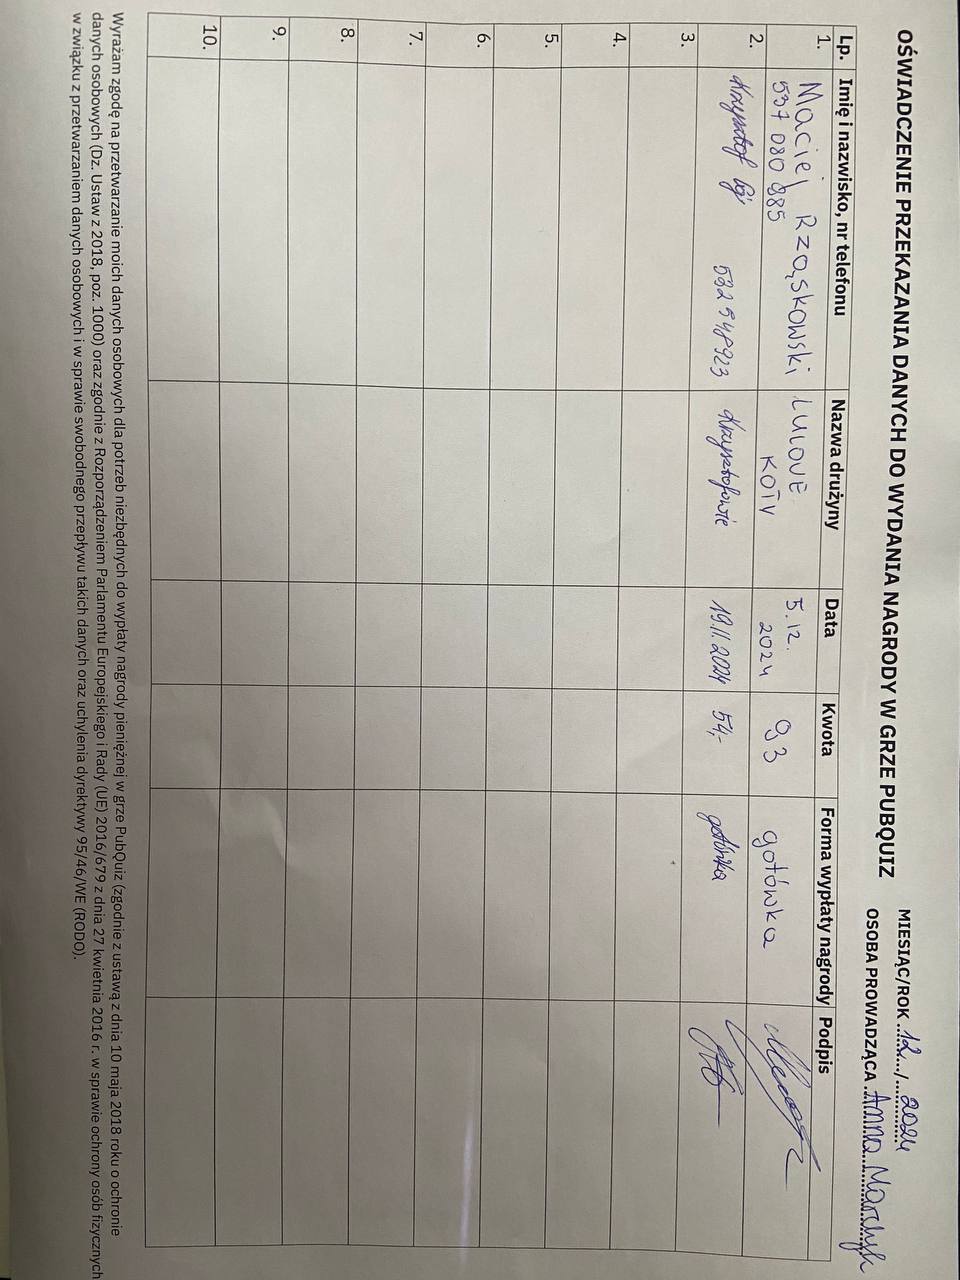 OŚWIADCZENIE PRZEKAZANIA DANYCH DO WYDANIA NAGRODY W GRZE PUBQUIZ
MIESIĄC/ROK 12 / 2024
OSOBA PROWADZĄCA Anna
Lp. Imię i nazwisko, nr telefonu Nazwa drużyny Data Kwota Forma wypłaty nagrody Podpis
1. Maciej Rząskowski LUIOVE 5.12. 93 gotówka
537 080 885 KOTY 2024
2. Krzysztof 532 548 923 Krzysztofowie 19.11.2024 54,- gotówka
3.
4.
5.
6.
7.
8.
9.
10.
Wyrażam zgodę na przetwarzanie moich danych osobowych dla potrzeb niezbędnych do wypłaty nagrody pieniężnej w grze PubQuiz (zgodnie z ustawą z dnia 10 maja 2018 roku o ochronie
danych osobowych (Dz. Ustaw z 2018, poz. 1000) oraz zgodnie z Rozporządzeniem Parlamentu Europejskiego i Rady (UE) 2016/679 z dnia 27 kwietnia 2016 r. w sprawie ochrony osób fizycznych
w związku z przetwarzaniem danych osobowych i w sprawie swobodnego przepływu takich danych oraz uchylenia dyrektywy 95/46/WE (RODO).